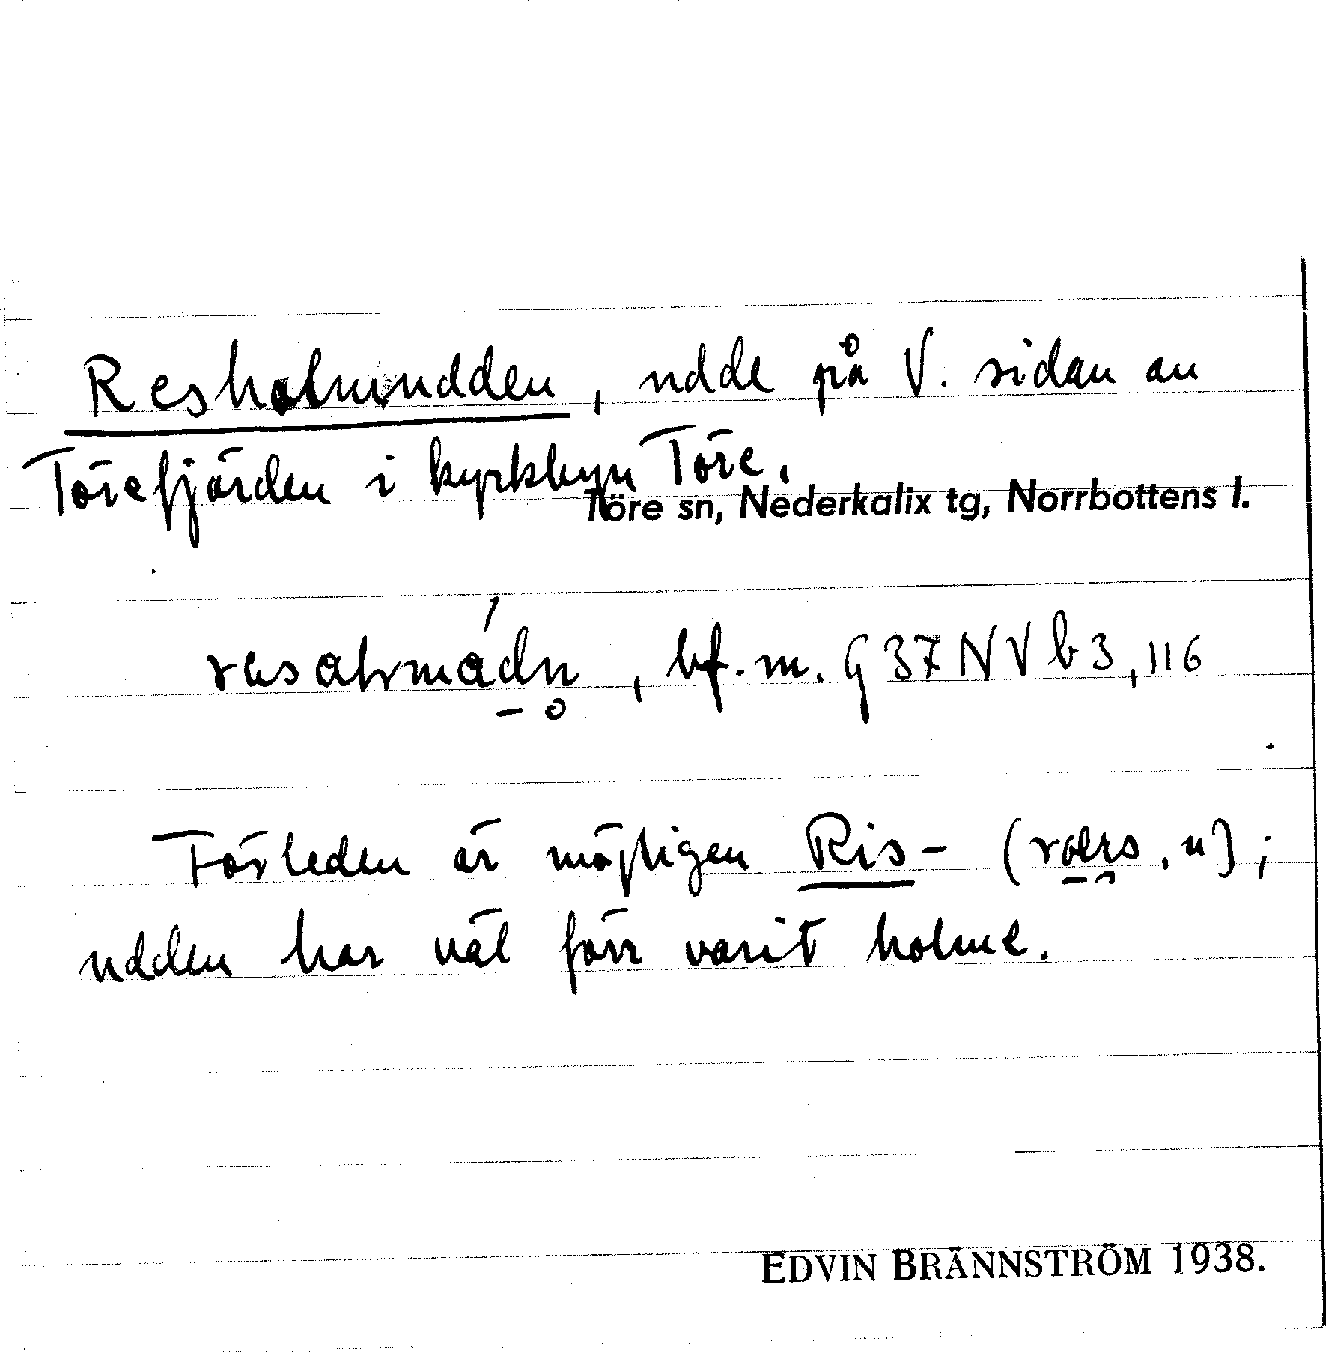 Resholmudden, udde på V. sidan av
Törefjärden i kyrkbyn Töre.
Töre sn, Nederkalix tg, Norrbottens l.
bf. m. G 37 NV b 3, 116
Förleden är möjligen Ris- ( . n);
udden har väl förr varit holme.
EDVIN BRÄNNSTRÖM 1938.